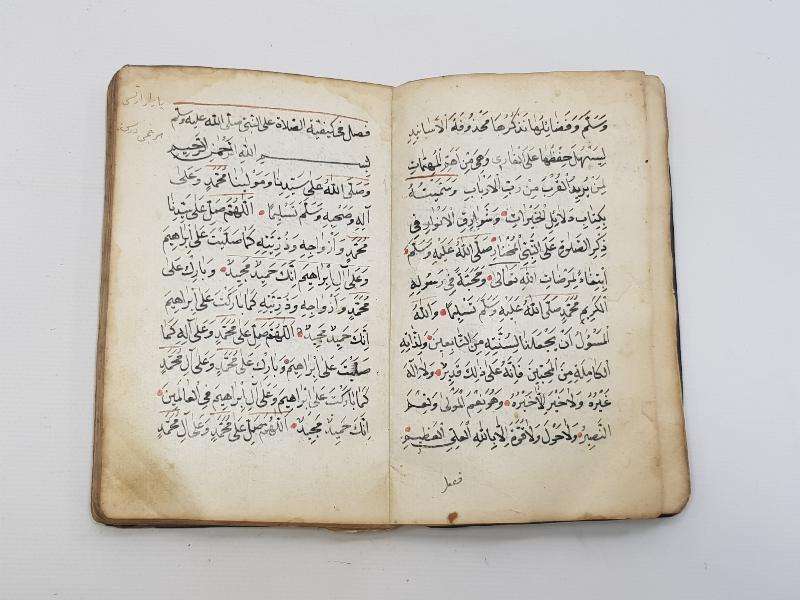 وسلم وفضائلها نذكرها محذوفة الاسانيد
ليسهل حفظها على القارى وهى من اهم المهمات
لمن يريد القرب من رب الارباب وسميته
بكتاب دلائل الخيرات وشوارق الانوار فى
ذكر الصلوة على النبى المختار صلى الله عليه وسلم
ابتغاء لمرضات الله تعالى ومحبة فى رسوله
الكريم محمد صلى الله عليه وسلم تسليما والله
المسؤل ان يجعلنا لسنته من التابعين ولذاته
الكاملة من المحبين فانه على ذلك قدير ولا اله
غيره ولا خير الا خيره وهو نعم المولى ونعم
النصير ولا حول ولا قوة الا بالله العلى العظيم
فصل
فصل فى كيفية الصلاة على النبى صلى الله عليه وسلم
بسم الله الرحمن الرحيم
وصلى الله على سيدنا ومولينا محمد وعلى
آله وصحبه وسلم تسليما اللهم صل على سيدنا
محمد وازواجه وذريته كما صليت على ابراهيم
وعلى آل ابراهيم انك حميد مجيد وبارك على
محمد وازواجه وذريته كما باركت على ابراهيم
انك حميد مجيد اللهم صل على محمد وعلى آله كما
صليت على ابراهيم وبارك على محمد وعلى آل محمد
كما باركت على ابراهيم وعلى آل ابراهيم فى العالمين
انك حميد مجيد اللهم صل على محمد وعلى آل محمد